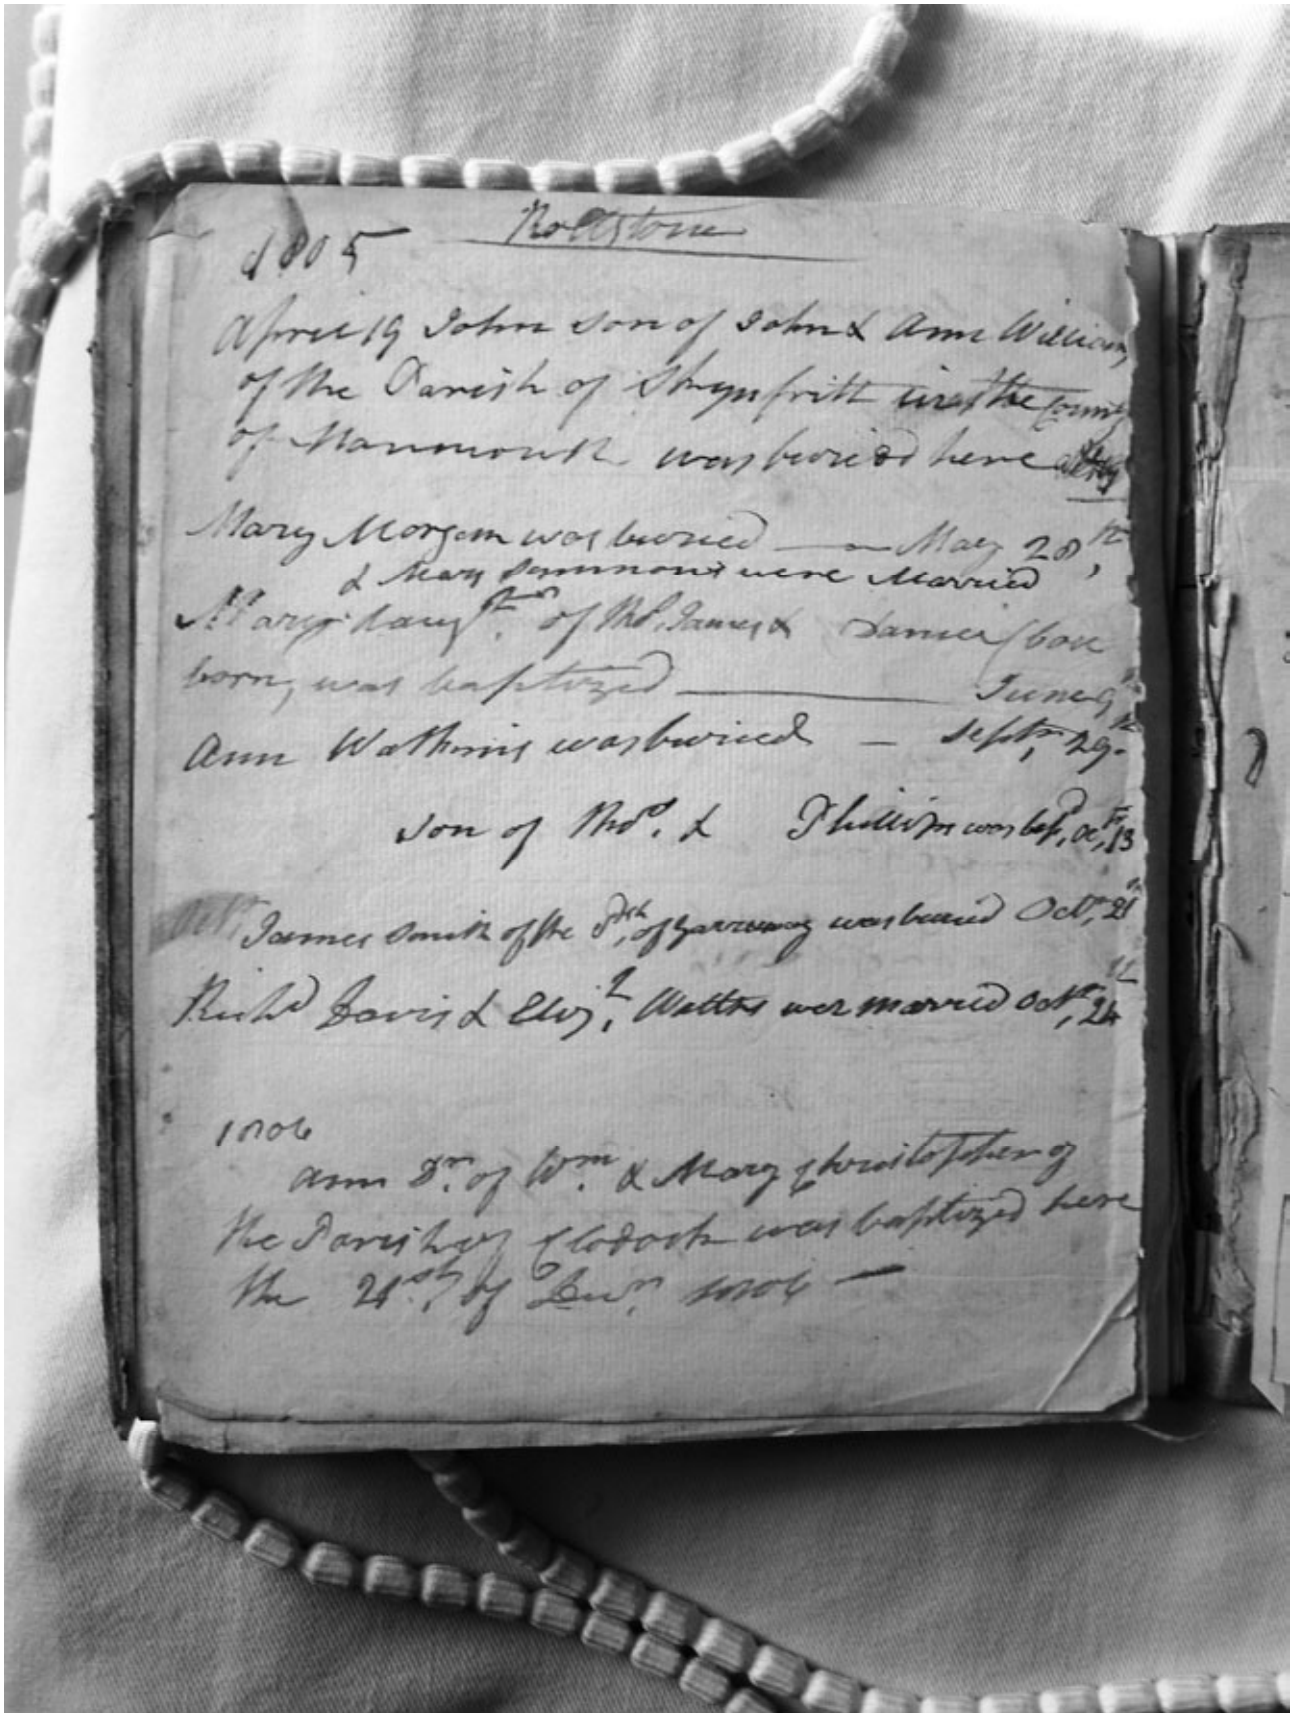 Rollstone
1805
April 19 John son of John & Ann Williams
of the Parish of in the County
of Monmouth was buried here
Mary Morgan was buried — May 28th,
& Mary Sammons were Married
Mary daugtr. of Thos. James & base
born, was baptized — June 9th
Ann Watkins was buried — Septr, 29th
son of Thos. & Phillips was bapd, Oct, 13th
Octr. James Smith of the Prsh, of Garway was buried Octr, 21st
Richd Davis & Eliz. Watkins wer married Octr, 24th
1806
Ann Dr. of Wm. & Mary Christopher of
the Parish of Clodock was baptized here
the 21st. of 1806 —